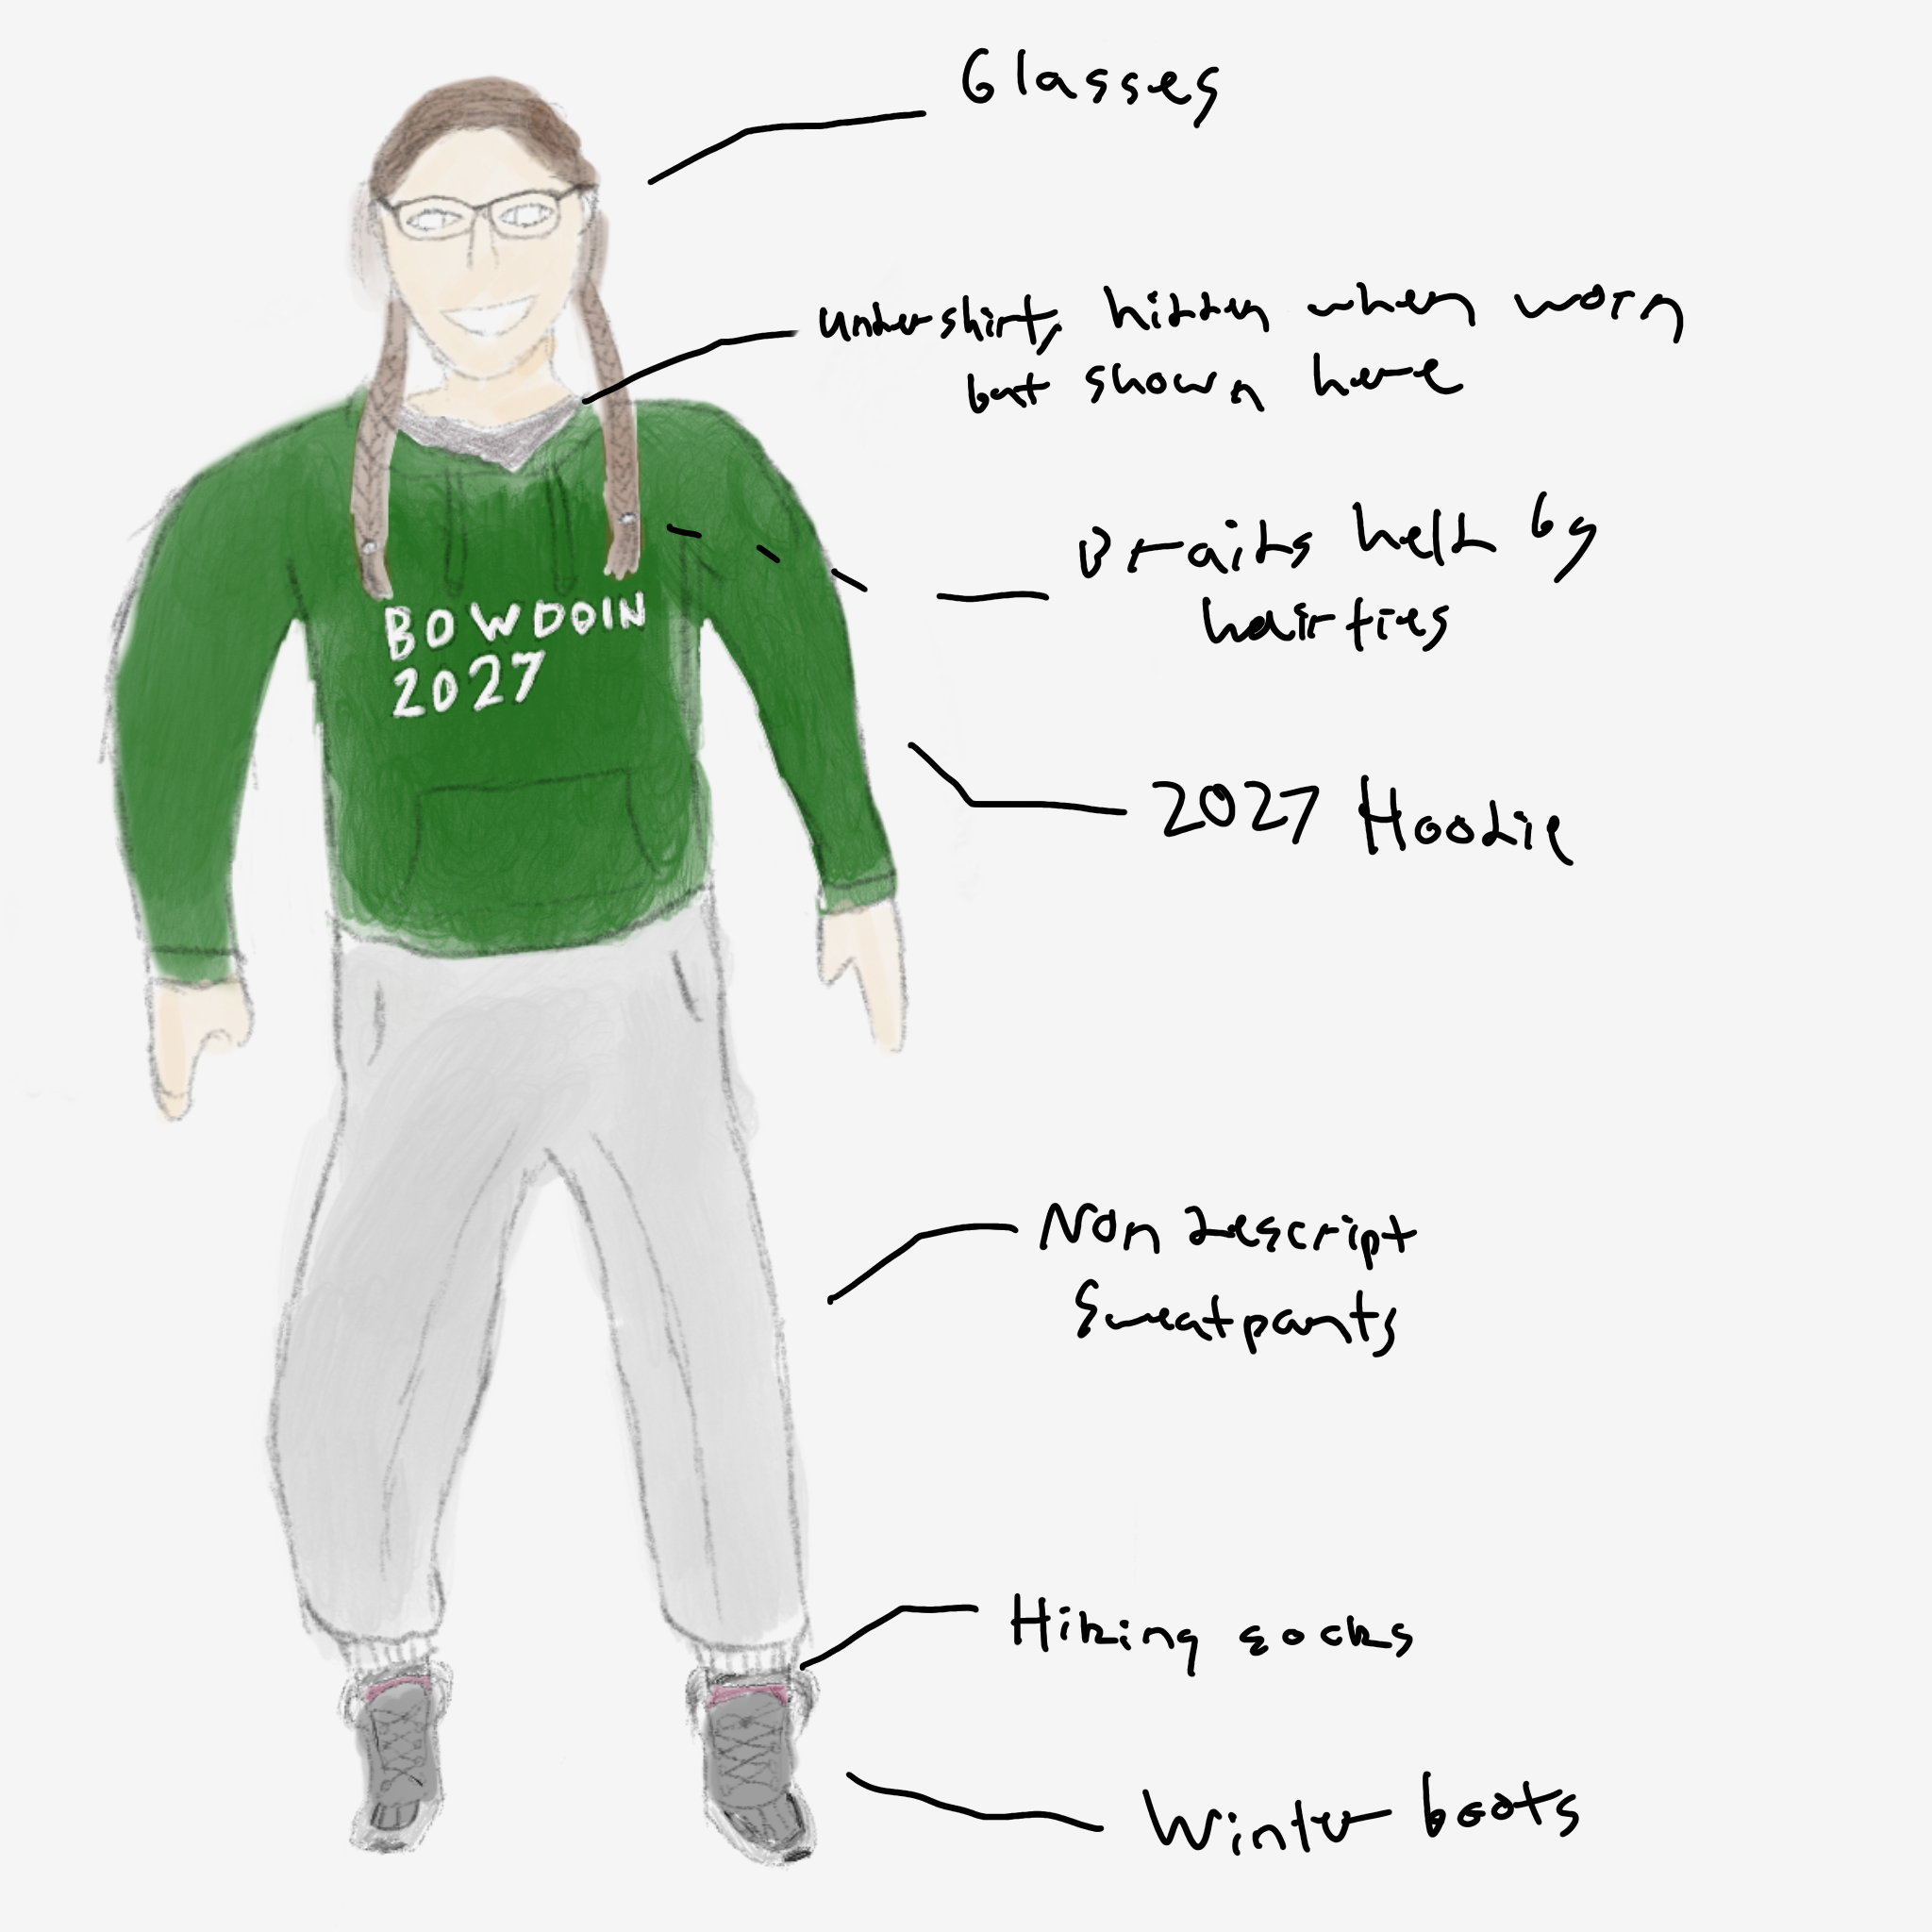 Glasses
undershirt, hidden when worn
but shown here
Braids held by
hair ties
BOWDOIN
2027
2027 Hoodie
Non descript
Sweatpants
Hiking socks
Winter boots